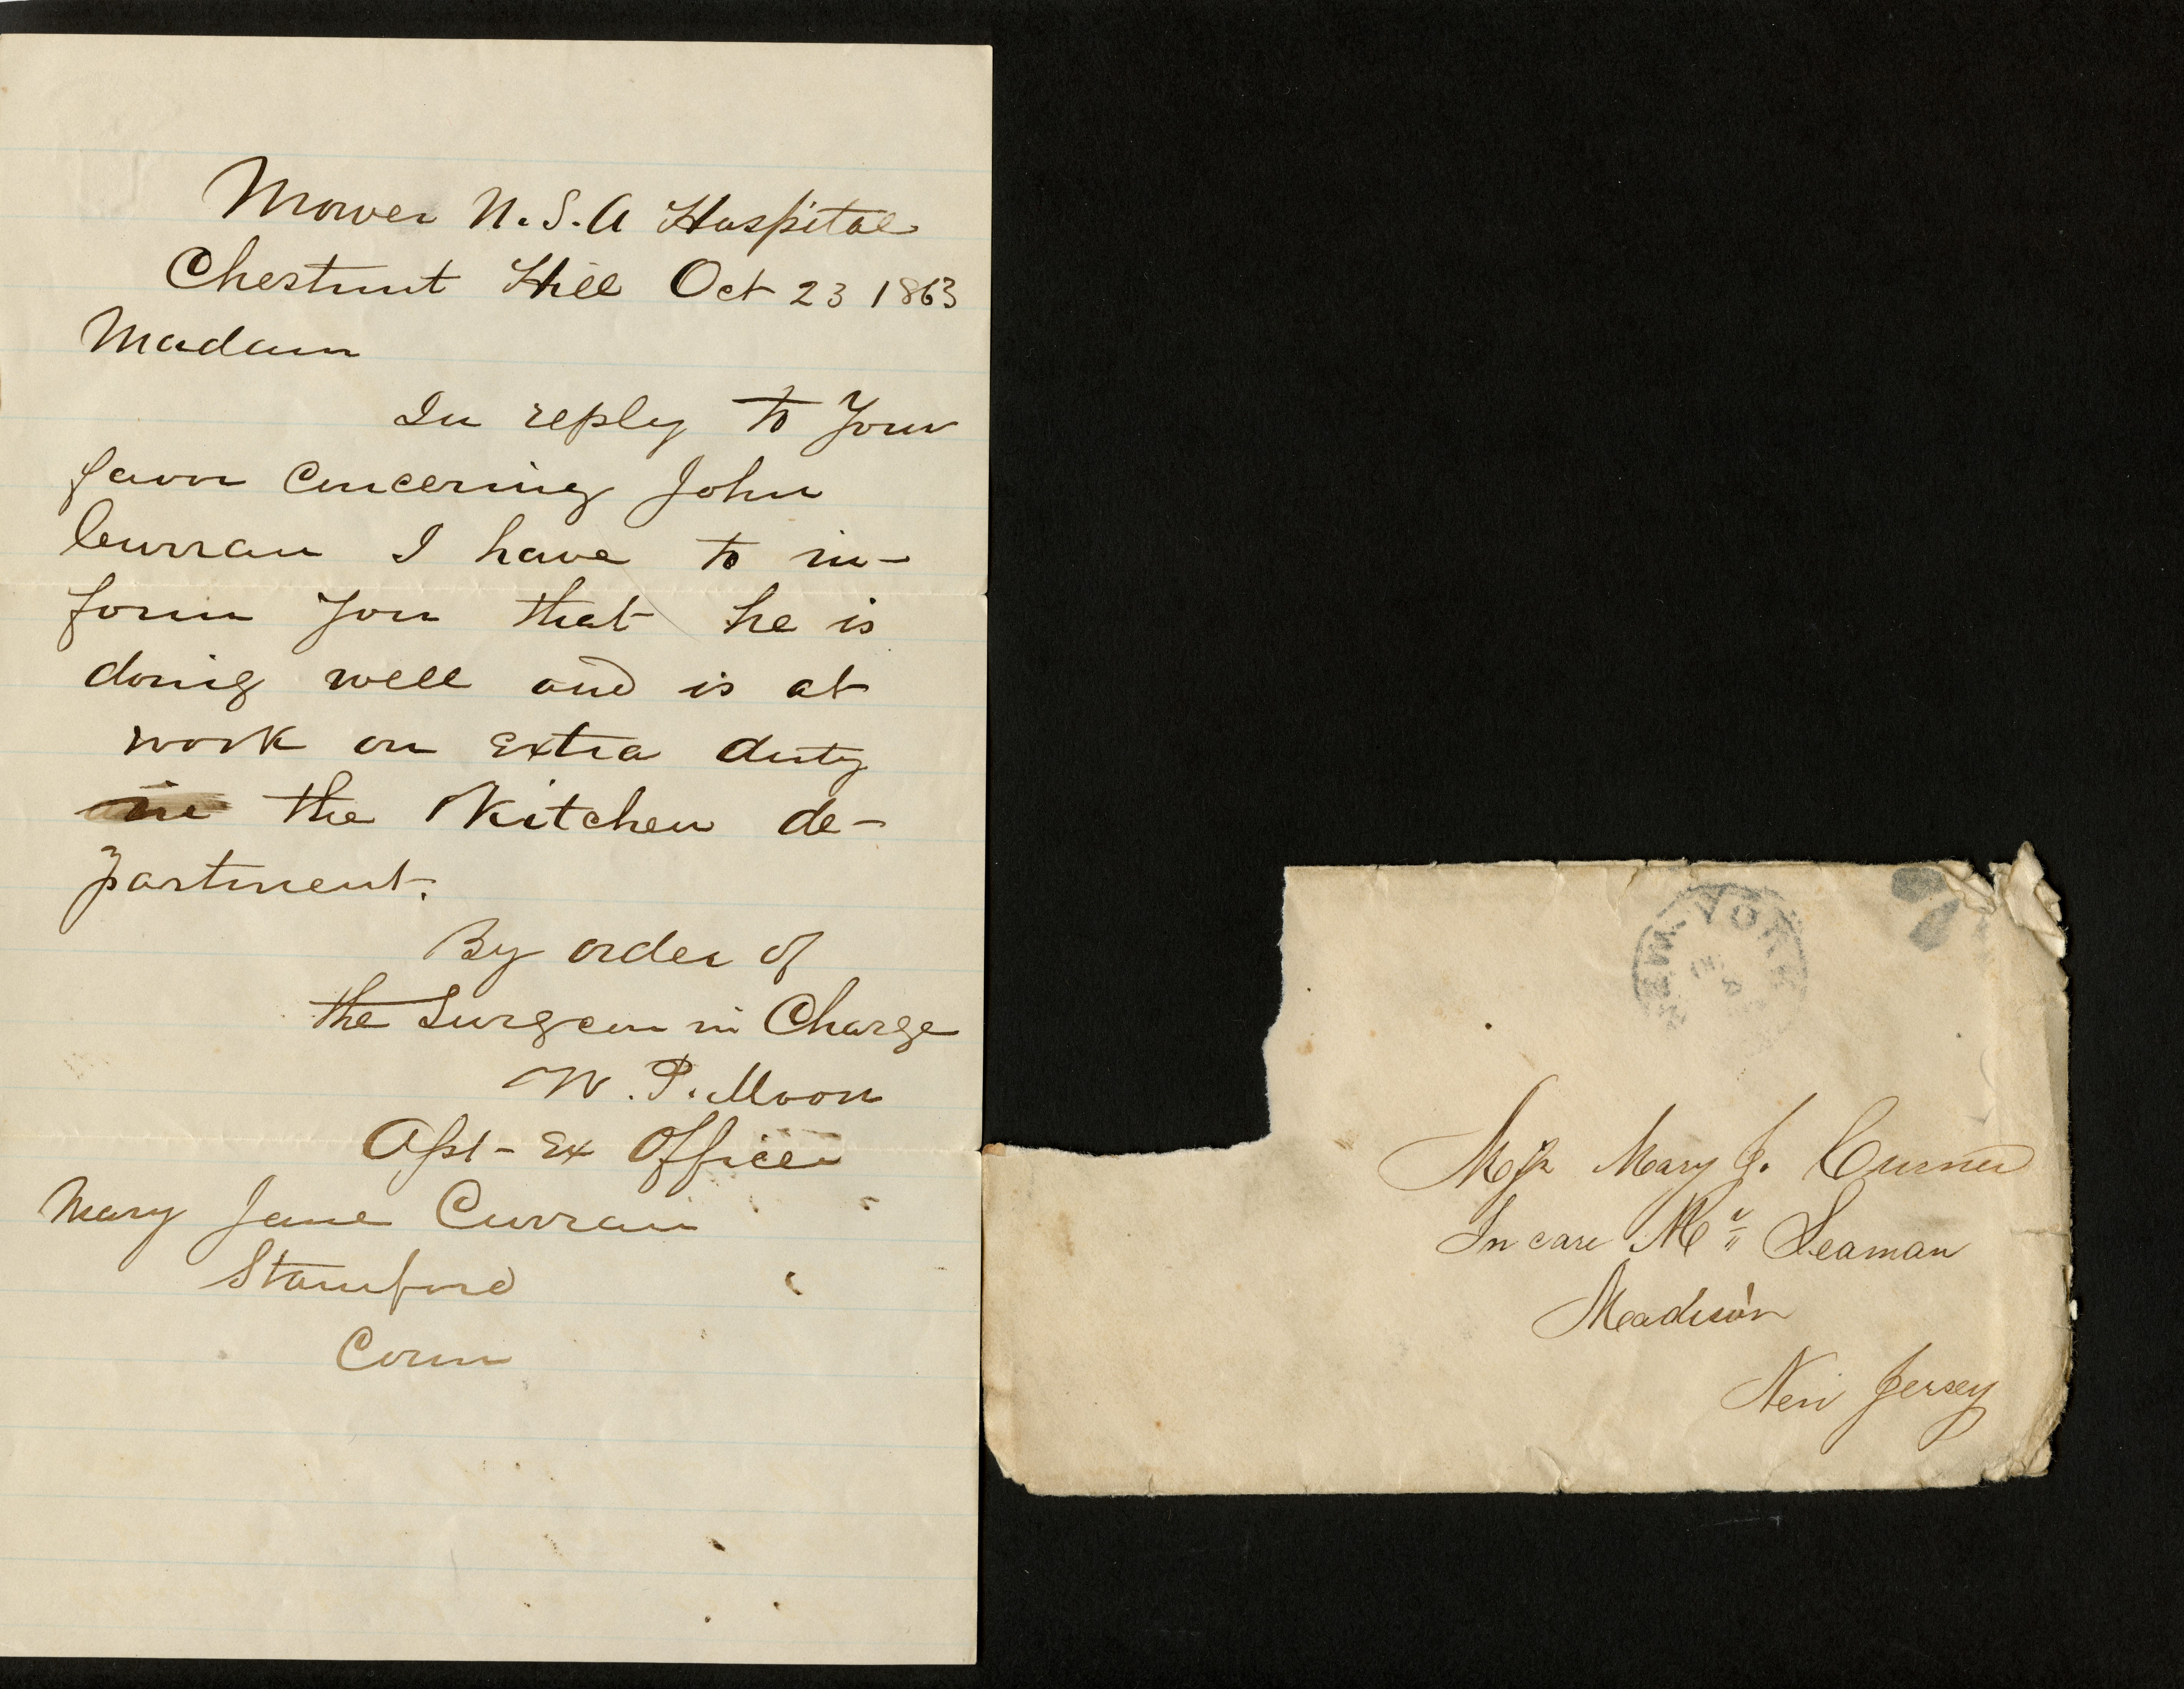 Mower U.S.A Hospital
Chestnut Hill Oct 23 1863
Madam
In reply to Your
favor concerning John
Curran I have to in-
form You that he is
doing well and is at
work on extra duty
in the Kitchen de-
partment.
By order of
the Surgeon in Charge
W. P. Moon
Asst - Ex Officer
Mary Jane Curran
Stamford
Conn
NEW-YORK
Miss Mary J. Curnen
In care Mr Seaman
Madison
New Jersey